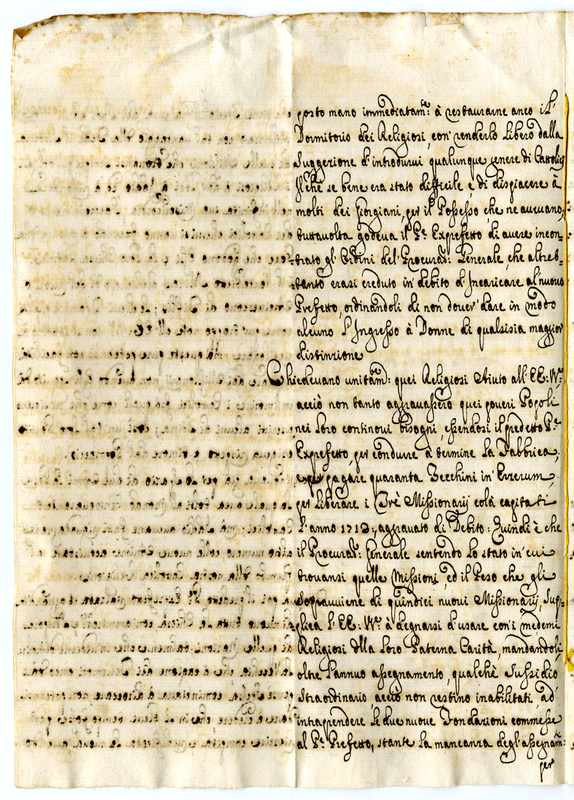 posto mano immediatam.e à restaurarne anco il
Dormitorio dei Religiosi, con renderlo Libero dalla
Suggezione d'introdurvi qualunque genere di Cattolici
Il che se bene era stato difficile e di dispiacere à
molti dei Giorgiani, per il Possesso, che ne aueuano,
tuttavolta godeva il P.e Exprefetto di avere incon=
trato gl'Ordini del Procurat.e Generale, che altret=
tanto erasi creduto in debito d'Incaricare al nuovo
Prefetto, ordinandoli di non douer dare in modo
alcuno l'Ingresso à Donne di qualsisia maggior
distinzione
Chiedeuano unitam.e quei Religiosi Aiuto all'EE: VV.e
acciò non tanto aggrauassero quei poueri Popoli
nei loro continoui bisogni, essendosi il predetto P.e
Exprefetto per condurre à termine la Fabbrica,
e per pagare quaranta Zecchini in Erzerum
per liberare i Trè Missionarij colà capitati
l'anno 1713: aggrauato di Debito: Quindi è che
il Procurat.e Generale sentendo lo stato in cui
trouansi quelle Missioni, ed il Peso che gli
soprauuiene di quindici nuoui Missionarij, Sup=
plica l'EE: VV.e à degnarsi d'usare con i medemi
Religiosi della loro Paterna Carità, mandandoli
oltre l'annuo assegnamento, qualche Sussidio
Straordinario acciò non restino inabilitati ad
intraprendere le due nuoue Fondazioni commesse
al P.e Prefetto, stante la mancanza degl'assegnam.ti
per